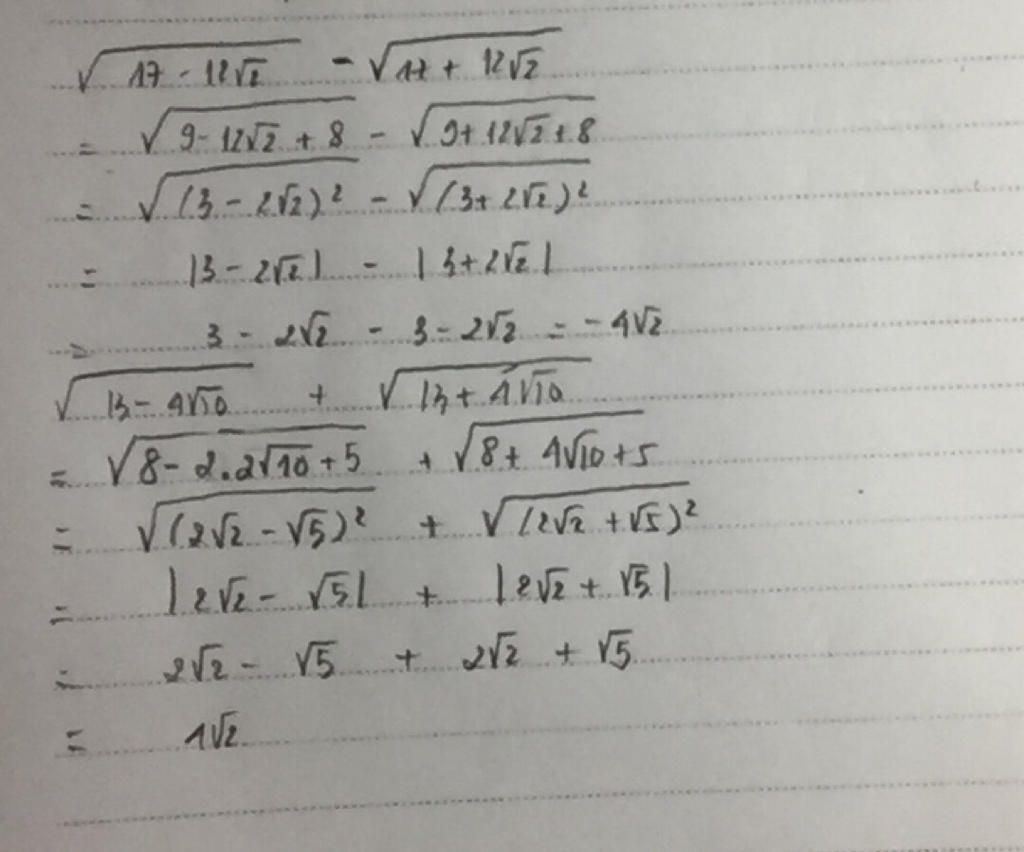 √(17 - 12√2) - √(17 + 12√2)
= √(9 - 12√2 + 8) - √(9 + 12√2 + 8)
= √((3 - 2√2)²) - √((3 + 2√2)²)
= |3 - 2√2| - |3 + 2√2|
= 3 - 2√2 - 3 - 2√2 = -4√2
√(13 - 4√10) + √(13 + 4√10)
= √(8 - 2.2√10 + 5) + √(8 + 4√10 + 5)
= √((2√2 - √5)²) + √((2√2 + √5)²)
= |2√2 - √5| + |2√2 + √5|
= 2√2 - √5 + 2√2 + √5
= 4√2